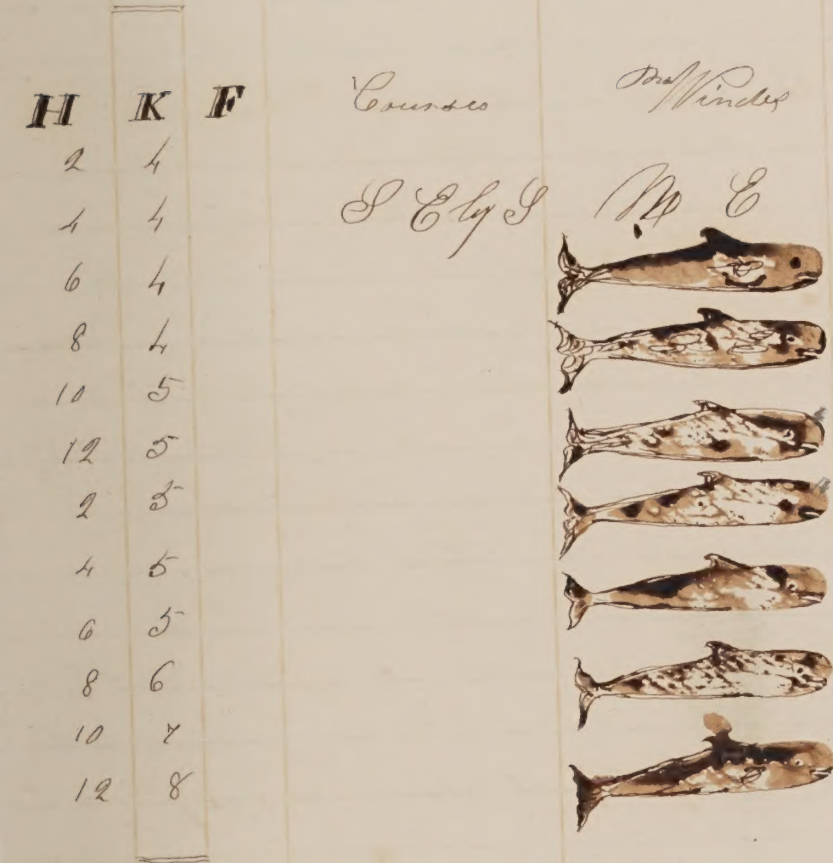 H K F Courses Winds
2 4
4 4 S E by S N E
6 4
8 4
10 5
12 5
2 5
4 5
6 5
8 6
10 7
12 8